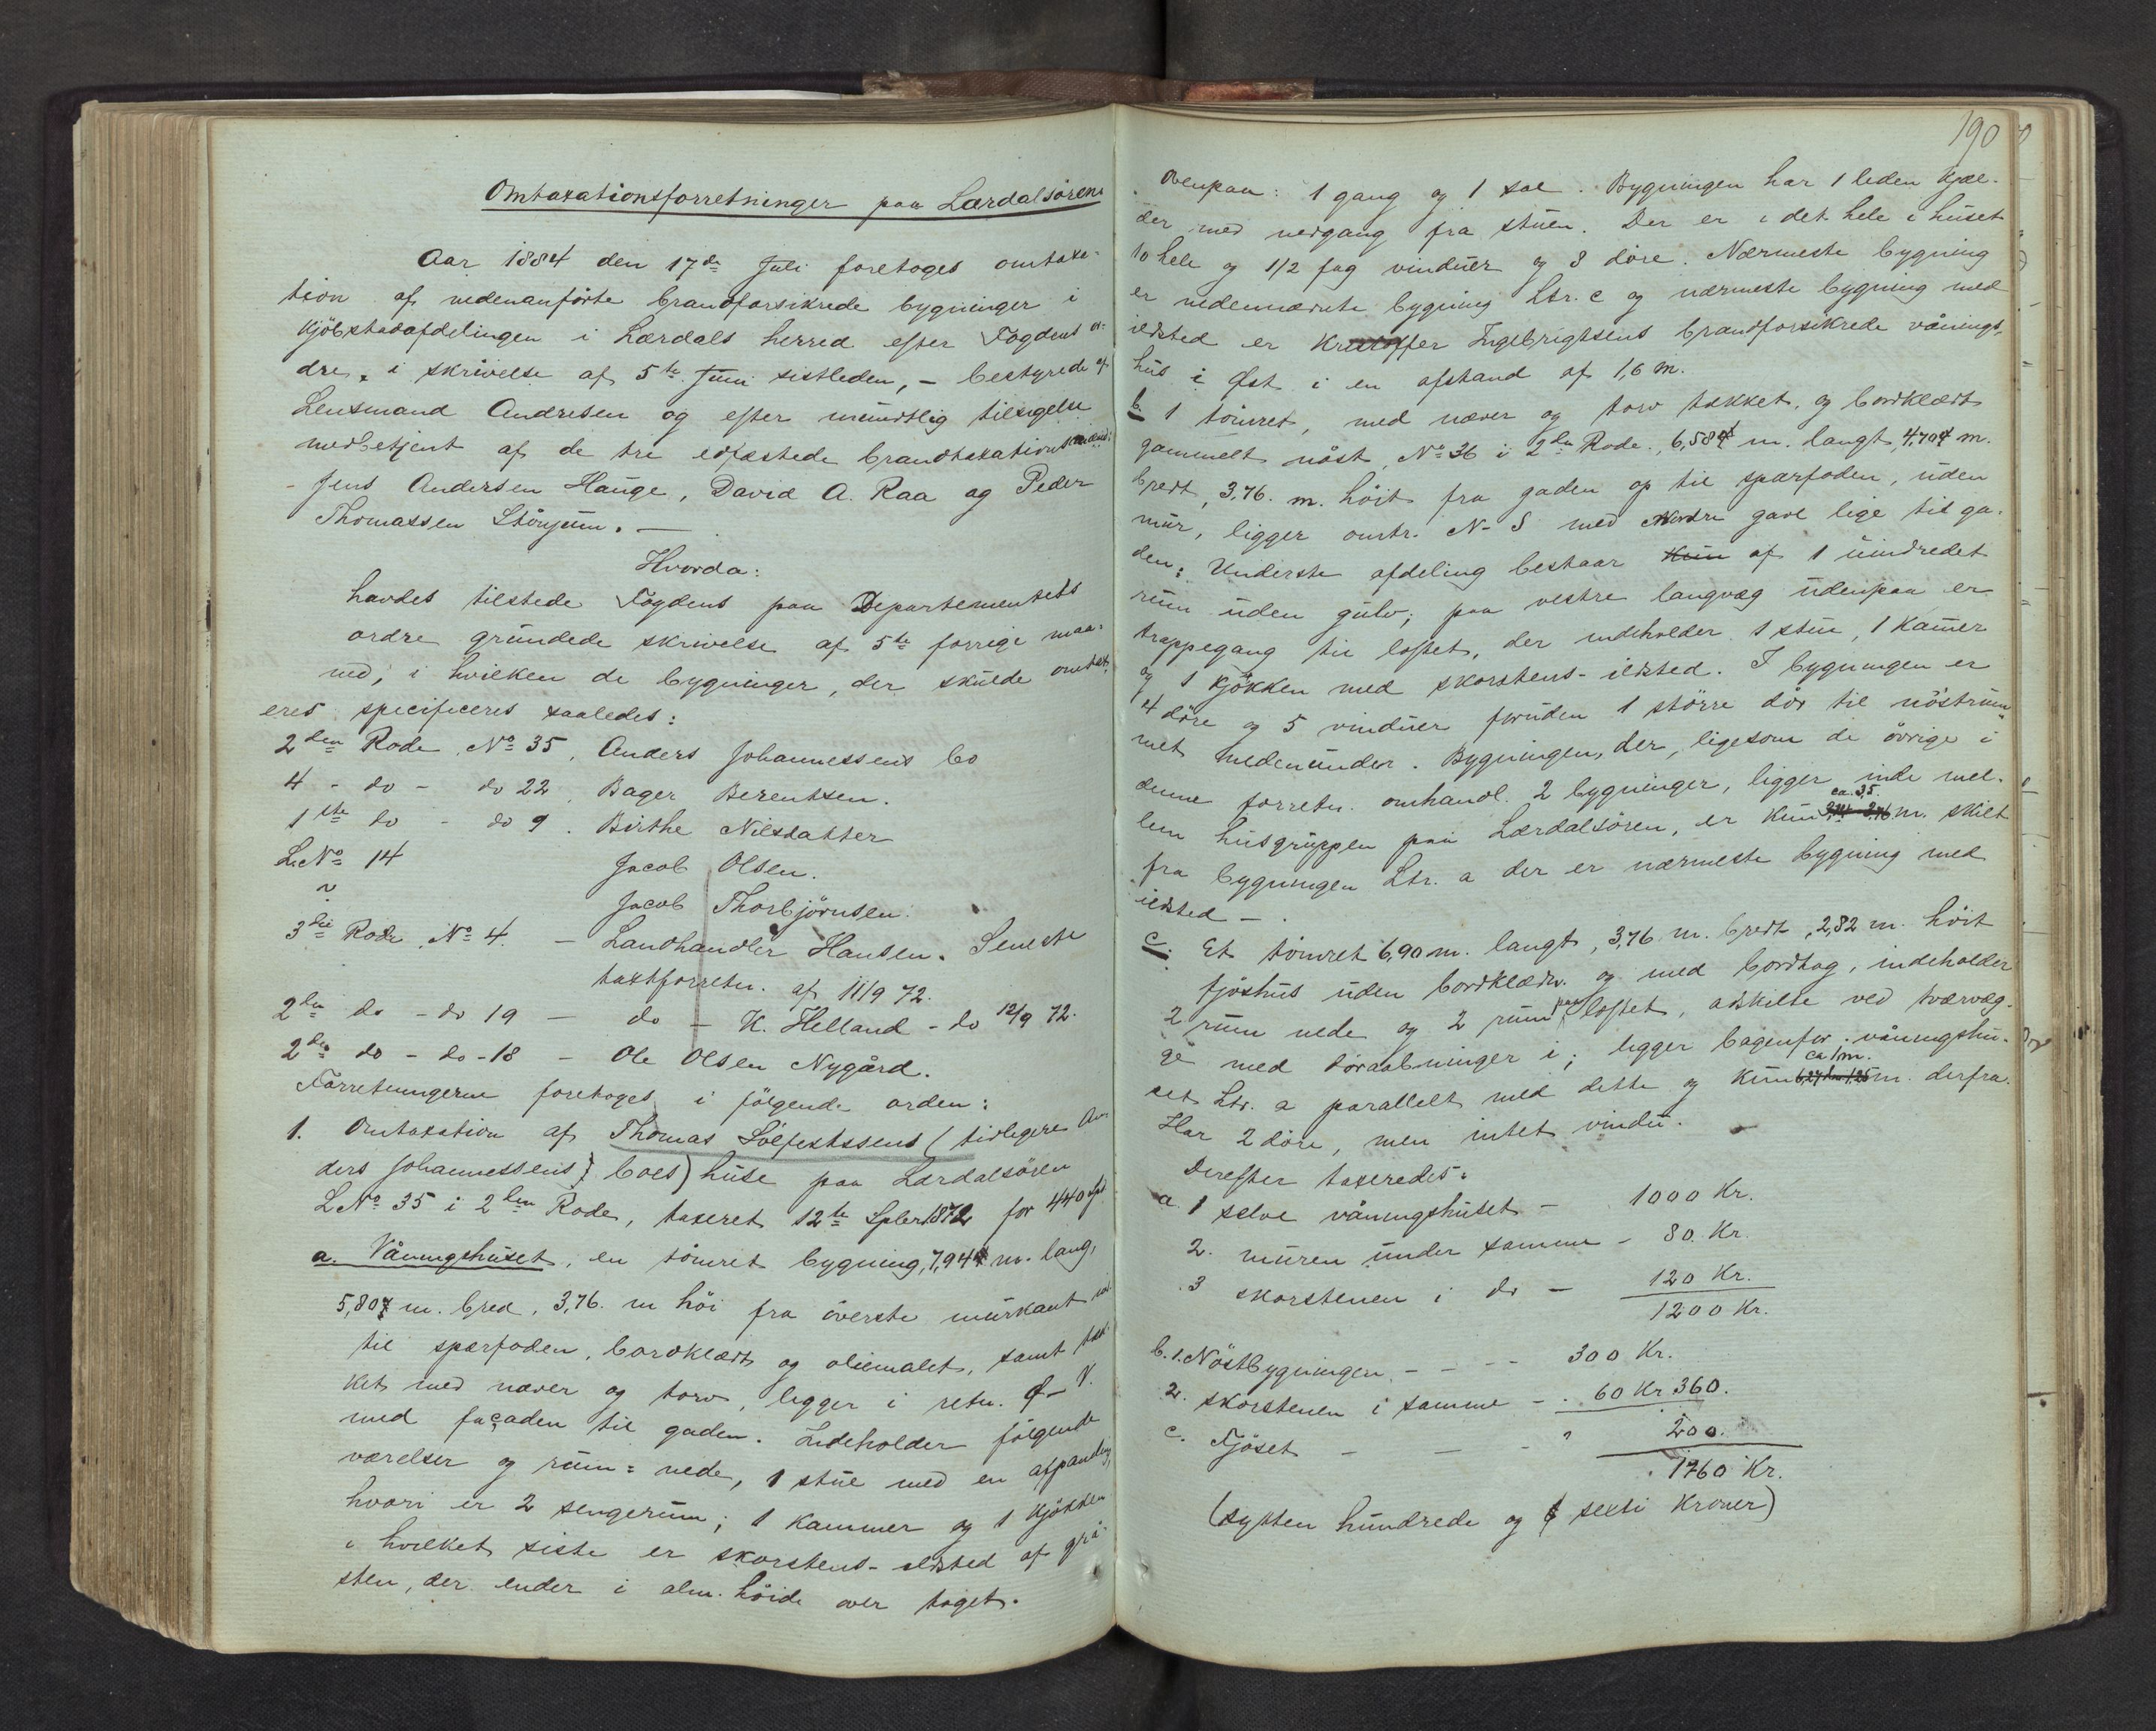 Omtaxationsforretninger paa Lærdalsören.
Aar 1884 den 17de Juli foretoges omtaxa-
tion af nedenanförte brandforsikrede bygninger i
Kjöbstadafdelingen i Lærdals herred efter Fogdens or-
dre, i skrivelse af 5te Juni sistleden, - bestyrede af
Lensmand Andresen og efter mündtlig tilsigelse
medbetjent af de tre edfæstede brandtaxationsmænd:
Jens Andersen Hauge, David A. Raa og Peder
Thomassen Stönjum. —
Hvorda:
havdes tilstede Fogdens paa Departementets
ordre grundede skrivelse af 5te forrige maa-
ned, i hvilken de bygninger, der skulde omtax-
eres specificeres saaledes:
2den Rode No 35, Anders Johannessens bo
4 - do - do 22. Bager Berentsen.
1ste do - do 9. Birthe Nilsdatter
L.No 14 Jacob Olsen.
~ Jacob Thorbjörnsen.
3die Rode No 4. - Landhandler Hansen. Seneste
taxtforretn. af 11/9 72.
2den do - do 19 - do - K. Helland - do 12/9 72.
2den do - do - 18 - Ole Olsen Nygård.
Forretningerne foretoges i fölgende orden:
1. Omtaxation af Thomas Sölfestssens (tidligere An-
ders Johannessens boes) huse paa Lærdalsören
L No 35 i 2den Rode, taxeret 12te Spbr 1872 for 440 spd.
a. Våningshuset, en tömret bygning, 7,94 m. lang,
5,80 m. bred, 3,76. m höi fra överste murkant ind-
til sparfoden, bordklædt og oliemalet, samt tæk-
ket med næver og torv, ligger i retn. Ø-V.
med façaden til gaden. Indeholder fölgende
værelser og rum: nede, 1 stue med en afpanling,
hvori er 2 sengerum; 1 kammer og 1 kjökken
i hvilket siste er skorstens-ildsted af grå-
sten, der ender i alm. höide over taget.
190
Ovenpaa: 1 gang og 1 sal. Bygningen har 1 liden kjæl-
der med nedgang fra stuen. Der er i det hele i huset
10 hele og 1/2 fag vinduer og 8 döre. Nærmeste bygning
er nedennævnte bygning Ltr. c og nærmeste bygning med
ildsted er Kristoffer Ingebrigtsens brandforsikrede vånings-
hus i Øst i en afstand af 1,6 m.
b. 1 tömret, med næver og torv tækket, og bordklædt
gammelt nöst, No 36 i 2den Rode, 6,58 m. langt, 4,70 m.
bredt, 3,76. m. höit fra gaden op til sparfoden, uden
mur, ligger omtr. N-S med Nordre gavl lige til ga-
den; Underste afdeling bestaar Kun af 1 uindredet
rum uden gulv; paa vestre langvæg udenpaa er
trappegang til loftet, der indeholder 1 stue, 1 kamer
og 1 kjökken med skorstens-ildsted. I bygningen er
4 döre og 5 vinduer foruden 1 större dör til nöstrum-
met nedenunder. Bygningen, der, ligesom de övrige i
denne forretn. omhandl. 2 bygninger, ligger inde mel-
lem husgruppen paa Lærdalsören, er kun ca. 3,5. m. skilt
fra bygningen Ltr. a der er nærmeste bygning med
ildsted -.
c. Et tömret 6,90 m. langt, 3,76 m. bredt, 2,82 m. höit
fjöshus uden bordklædn. og med bordtag, indeholder
2 rum nede og 2 rum paa loftet, adskilte ved tværvæg-
ge med döraabninger i; ligger bagenfor våningshu-
set Ltr. a parallelt med dette og kun ca 1 m. derfra.
Har 2 döre, men intet vindu.
Derefter taxeredes:
a. 1 selve våningshuset - 1000 Kr.
2. muren under samme - 80. Kr.
3 skorstenen i do - 120 Kr.
1200 Kr.
b. 1. Nöstbygningen - - - - 300 Kr.
2. skorstenen i samme - . 60 Kr 360.
c. Fjöset - - - " 200.
1760 Kr.
(sytten hundrede og sexti Kroner)